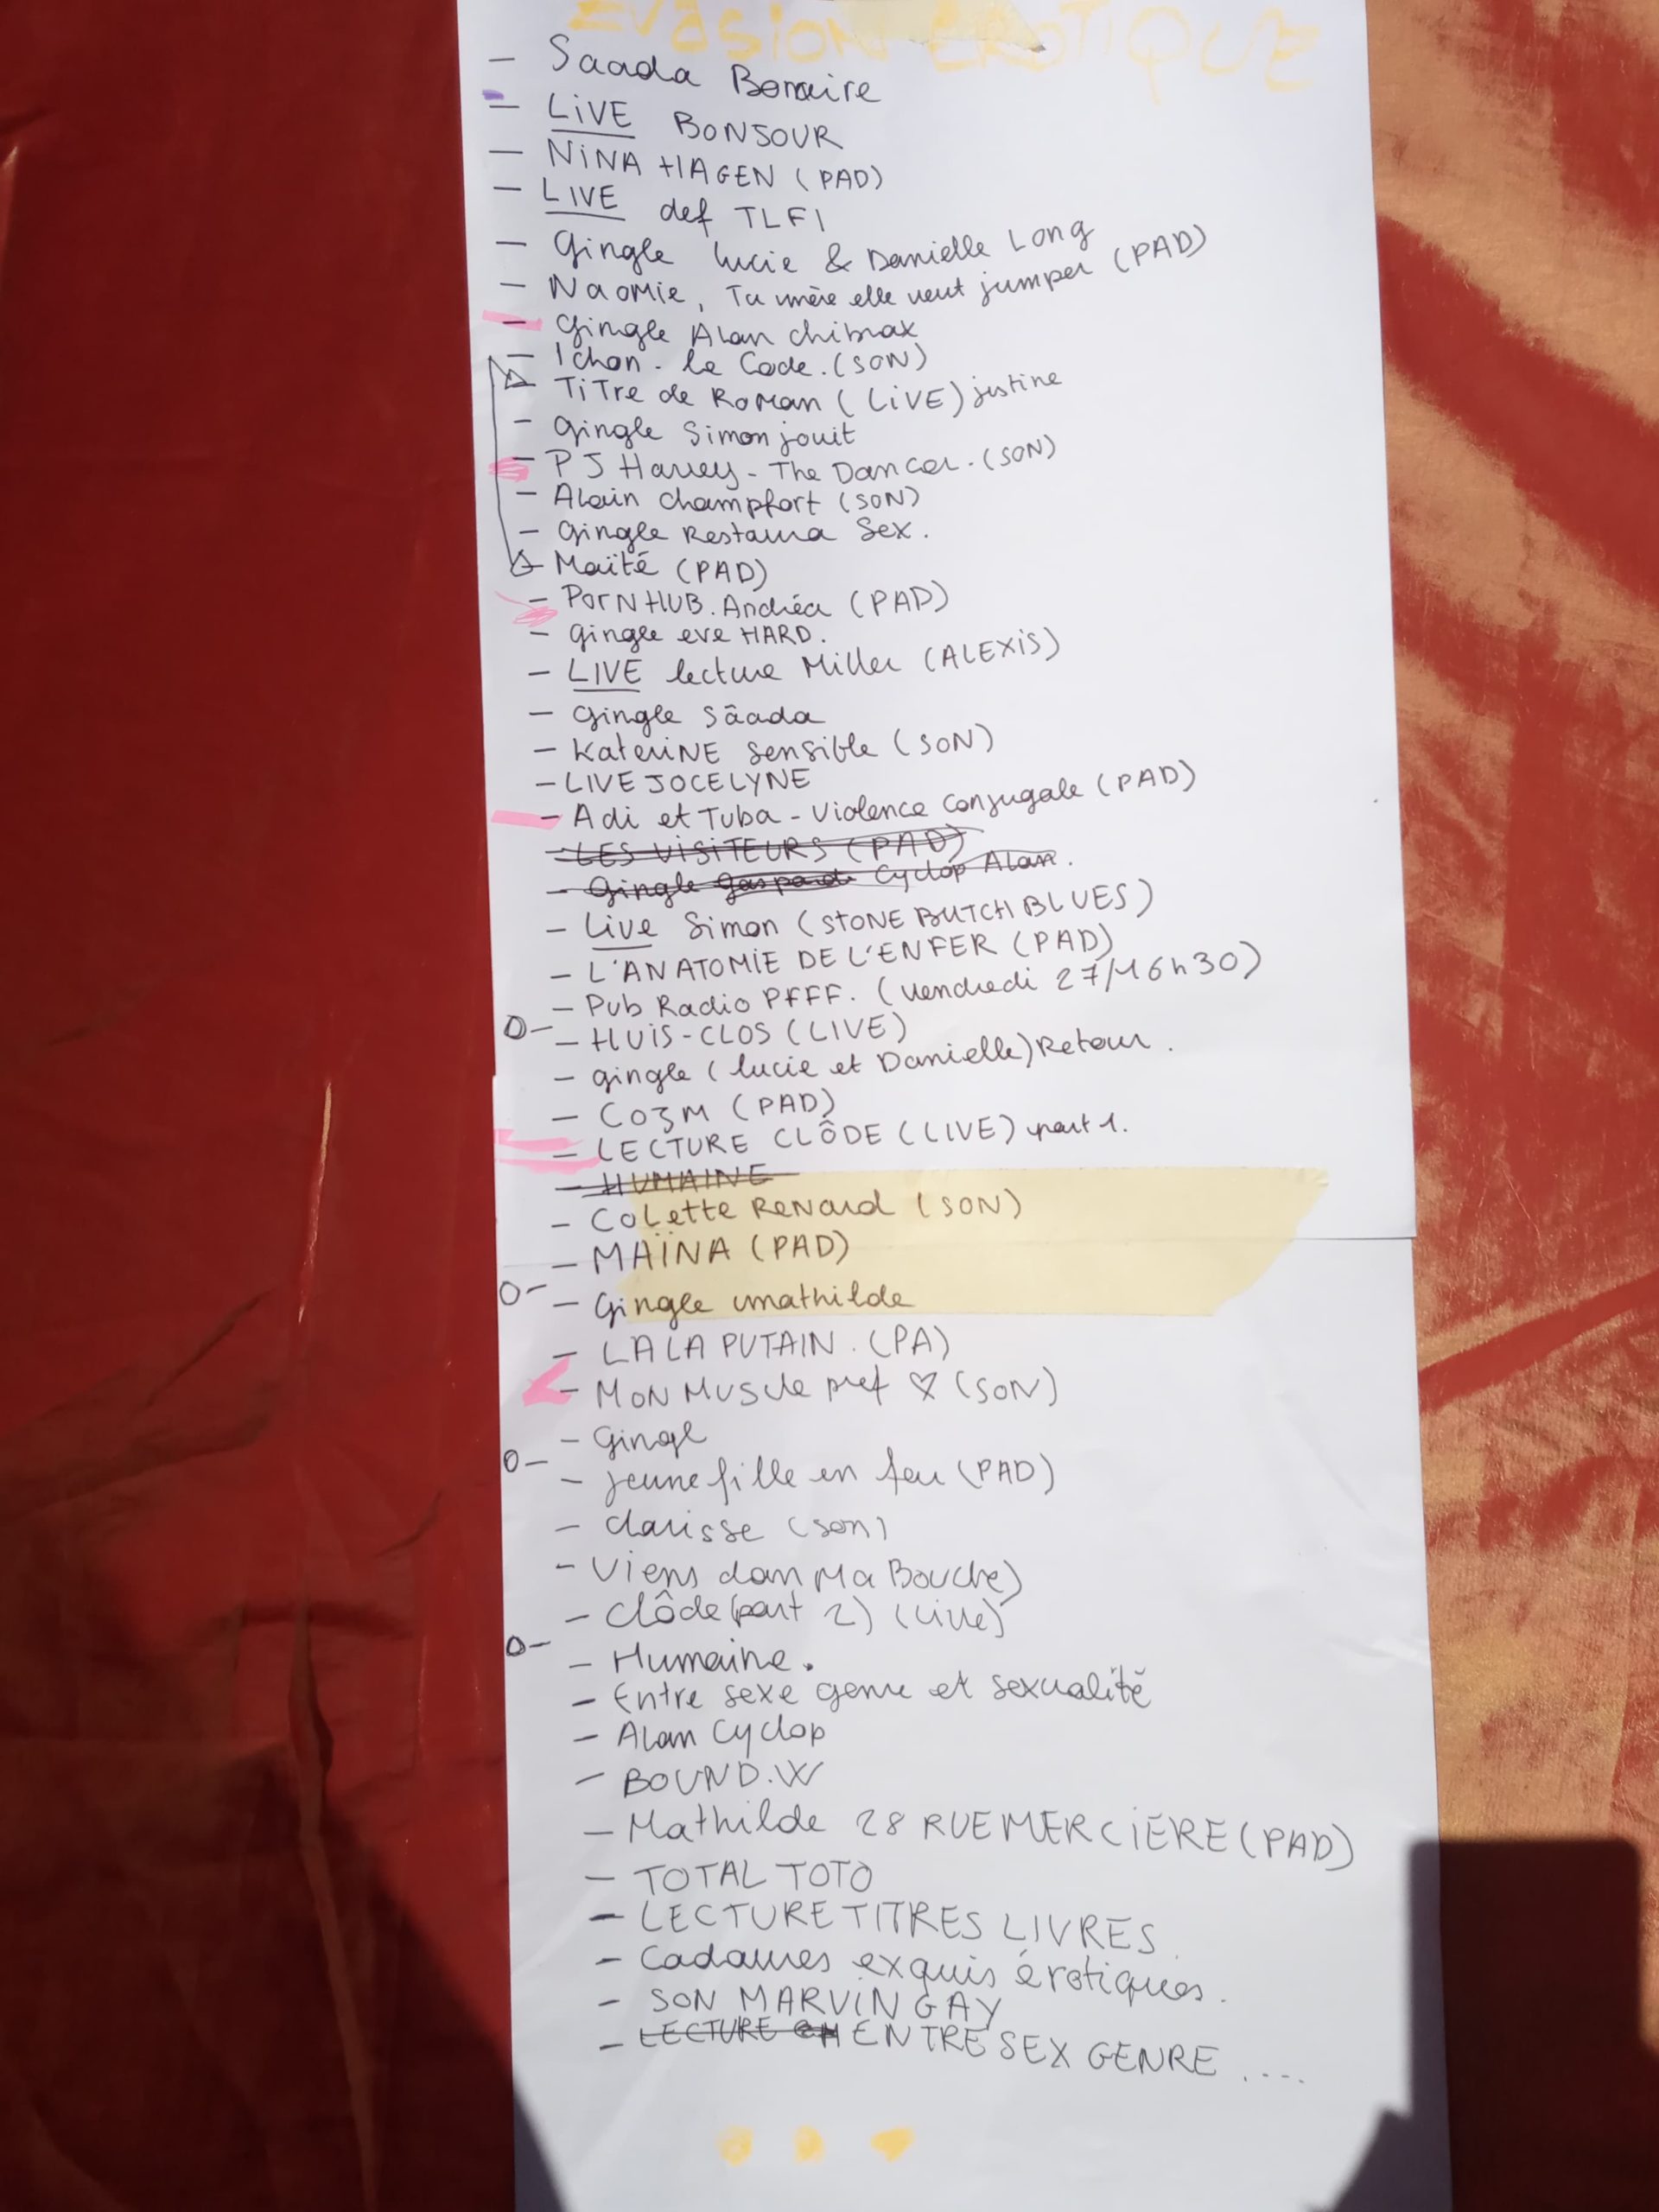 EVASION EROTIQUE
- Saada Bonaire
- LiVE BONJOUR
- NiNA HAGEN (PAD)
- LIVE def TLFI
- Gingle Lucie & Danielle Long
- Naomie, Ta mère elle veut jumper (PAD)
- Gingle Alan chibrax
- Ichon - le Code. (SON)
- TiTre de Roman (LiVE) justine
- Gingle Simon jouit
- PJ Harvey - The Dancer. (SON)
- Alain champfort (SON)
- Gingle Restaura Sex.
- Maïté (PAD)
- PorNHUB. Andréa (PAD)
- gingle eve HARD.
- LIVE lecture Miller (ALEXiS)
- Gingle Sâada
- KateriNE sensible (SON)
- LIVE JOCELYNE
- Adi et Tuba - Violence conjugale (PAD)
- LES ViSiTEURS (PAD)
- Gingle gaspard Cyclop Alan.
- Live Simon (STONE BUTCH BLUES)
- L'ANATOMiE DE L'ENFER (PAD)
- Pub Radio PFFF. (vendredi 27/16h30)
- HUiS-CLOS (LIVE)
- gingle (lucie et Danielle) Retour.
- Co3M (PAD)
- LECTURE CLÔDE (LIVE) part 1.
- HUMAINE
- Colette Renard (SON)
- MAÏNA (PAD)
- Gingle mathilde
- LALA PUTAIN. (PA)
- MoN MUScle pref ♡ (SON)
- Gingl
- jeune fille en feu (PAD)
- clarisse (son)
- Viens dan Ma Bouche)
- Clôde (part 2) (Live)
- Humaine.
- Entre sexe genre et sexualité
- Alan Cyclop
- BOUND.W
- Mathilde 28 RUE MERCIÈRE (PAD)
- TOTAL TOTO
- LECTURE TITRES LIVRES
- Cadavres exquis érotiques.
- SON MARViN GAY
- LECTURE ENTRE SEX GENRE ....